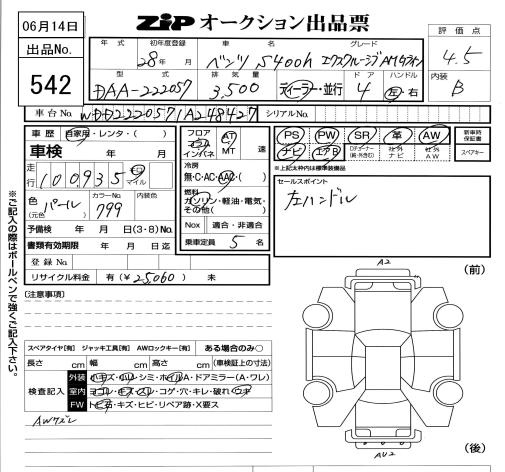 06月14日
ZIP オークション出品票
出品No.
542
年式 初年度登録 車名 グレード
28年 月 ベンツ S400h エクスクルーシブ AMGライン
型式 排気量 ドア ハンドル
DAA-222057 3,500 ディーラー・並行 4 左 右
評価点
4.5
内装
B
車台No. WDD2220571A248427 シリアルNo.
車歴 自家用・レンタ・( )
車検 年 月
走行 100,935 km マイル
色(元色) パール カラーNo. 799 内装色
予備検 年 月 日(3・8)No.
書類有効期限 年 月 日迄
登録No.
リサイクル料金 有(¥25,060) 未
フロア コラム インパネ AT MT 速
冷房
無・C・AC・AAC・( )
燃料
ガソリン・軽油・電気・その他( )
Nox 適合・非適合
乗車定員 5 名
PS PW SR 革 AW 新車時保証書
ナビ エアB 社外ナビ 社外AW スペアキー
※上記太枠内は標準装備品
セールスポイント
左ハンドル
※ご記入の際はボールペンで強くご記入下さい。
[注意事項]
スペアタイヤ[有] ジャッキ工具[有] AWロックキー[有] ある場合のみ○
長さ cm 幅 cm 高さ cm (車検証上の寸法)
検査記入
外装 小キズ・凹・シミ・ホイルA・ドアミラー(A・ワレ)
室内 ヨゴレ・キズ・スレ・コゲ・穴・キレ・破れ・
FW トビ石・キズ・ヒビ・リペア跡・X要ス
AWスレ
(前)
A2
AU2
(後)